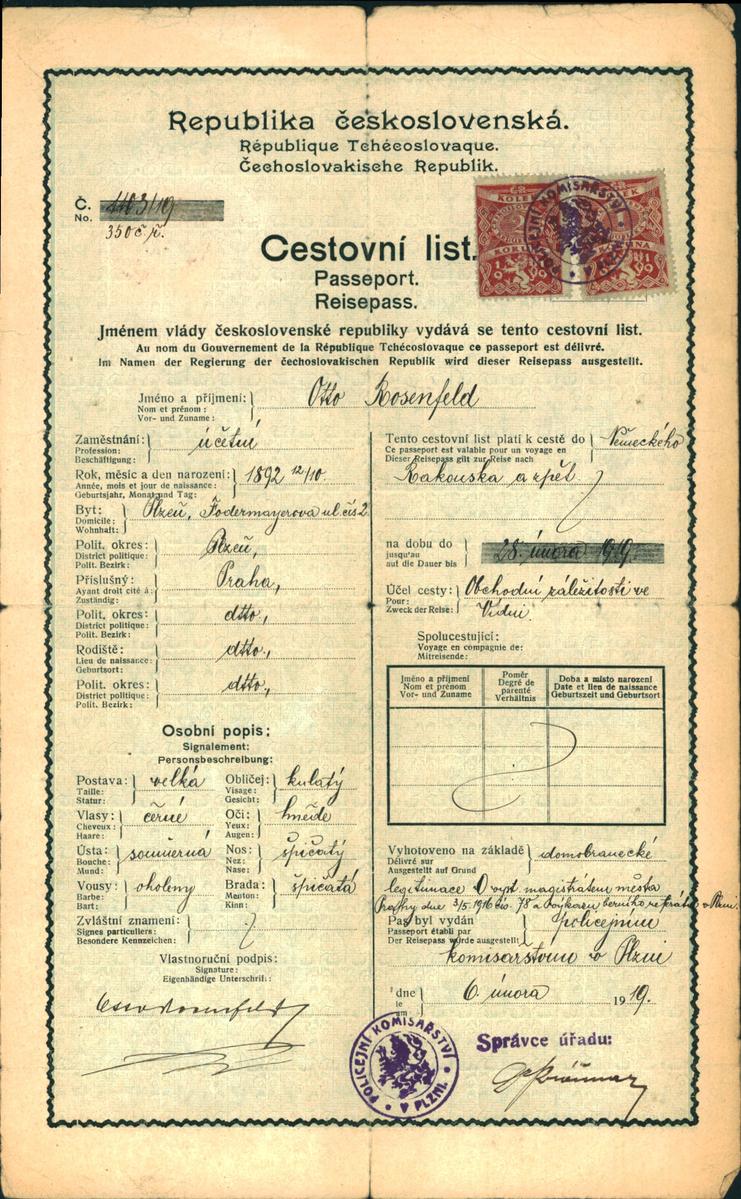 Republika československá.
République Tchécoslovaque.
Čechoslovakische Republik.
Č. 1403/19
No.
350 č. ř.
KOLEK KOLEK
KORUNA KORUNA
POLICEJNÍ KOMISAŘSTVÍ V PLZNI.
Cestovní list.
Passeport.
Reisepass.
Jménem vlády československé republiky vydává se tento cestovní list.
Au nom du Gouvernement de la République Tchécoslovaque ce passeport est délivré.
Im Namen der Regierung der čechoslovakischen Republik wird dieser Reisepass ausgestellt.
Jméno a příjmení: Otto Rosenfeld
Nom et prénom:
Vor- und Zuname:
Zaměstnání: účetní
Profession:
Beschäftigung:
Rok, měsíc a den narození: 1892 12/10.
Année, mois et jour de naissance:
Geburtsjahr, Monat und Tag:
Byt: Plzeň, Fodermayerova ul. čís 2
Domicile:
Wohnhaft:
Polit. okres: Plzeň,
District politique:
Polit. Bezirk:
Příslušný: Praha,
Ayant droit cité á:
Zuständig:
Polit. okres: dtto,
District politique:
Polit. Bezirk:
Rodiště: dtto,
Lieu de naissance:
Geburtsort:
Polit. okres: dtto,
District politique:
Polit. Bezirk:
Osobní popis:
Signalement:
Personsbeschreibung:
Postava: velká Obličej: kulatý
Taille: Visage:
Statur: Gesicht:
Vlasy: černé Oči: hnědé
Cheveux: Yeux:
Haare: Augen:
Ústa: souměrná Nos: špičatý
Bouche: Nez:
Mund: Nase:
Vousy: oholený Brada: špičatá
Barbe: Menton:
Bart: Kinn:
Zvláštní znamení:
Signes particuliers:
Besondere Kennzeichen:
Vlastnoruční podpis:
Signature:
Eigenhändige Unterschrift:
Otto Rosenfeld
Tento cestovní list platí k cestě do Německého
Ce passeport est valable pour un voyage en
Dieser Reisepass gilt zur Reise nach
Rakouska a zpět
na dobu do 28. února 1919.
jusqu'au
auf die Dauer bis
Účel cesty: Obchodní záležitosti ve
Pour:
Zweck der Reise: Vídni.
Spolucestující:
Voyage en compagnie de:
Mitreisende:
Jméno a příjmení Poměr Doba a místo narození
Nom et prénom Degré de parenté Date et lieu de naissance
Vor- und Zuname Verhältnis Geburtszeit und Geburtsort
Vyhotoveno na základě domobranecké
Délivré sur
Ausgestellt auf Grund
legitimace D vyst. magistrátem města
Prahy dne 3/5 1916 čís. 78 a v Plzni.
Pas byl vydán policejním
Passeport établi par
Der Reisepass wurde ausgestellt
komisařstvím v Plzni
dne 6. února 1919.
le
am
POLICEJNÍ KOMISAŘSTVÍ V PLZNI.
Správce úřadu: